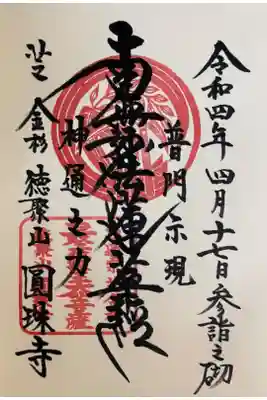 令和四年四月十七日参詣之砌
普門示現
南無妙法蓮華経
神通之力
芝 金杉 徳聚山 圓珠寺